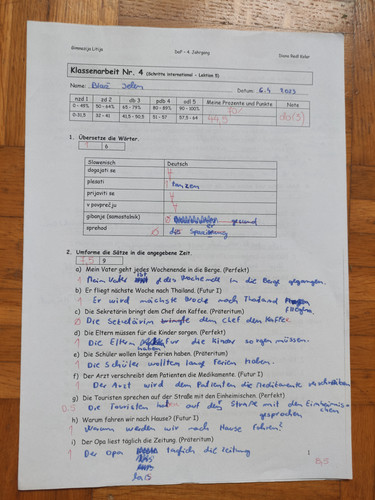 Gimnazija Litija 3al - 4. Jahrgang
Klassenarbeit Nr. 4 (Schritte international - Lektion 5)
Name: Datum: 6.4.2023
nzd 1 zd 2 db 3 pdb 4 odl 5 Meine Prozente und Punkte Note
0 - 49% 50 - 64% 65 - 79% 80 - 89% 90 - 100%
0-31,5 32 - 41 41,5 - 50,5 51 - 57 57,5 - 64 44,5 db(3)
1. Übersetze die Wörter.
6
Slowenisch Deutsch
dogajati se
plesati tanzen
prijaviti se
v povprečju
gibanje (samostalnik) gesund
sprehod
2. Umforme die Sätze in die angegebene Zeit.
7,5 9
a) Mein Vater geht jedes Wochenende in die Berge. (Perfekt)
1 Mein Vater ist jedes Wochenende in die Berge gegangen.
b) Er fliegt nächste Woche nach Thailand. (Futur I)
1 Er wird nächste Woche nach Thailand fliegen.
c) Die Sekretärin bringt dem Chef den Kaffee. (Präteritum)
Die Sekretärin bringte dem Chef den Kaffee.
d) Die Eltern müssen für die Kinder sorgen. (Perfekt)
1 Die Eltern haben für die Kinder sorgen müssen.
e) Die Schüler wollen lange Ferien haben. (Präteritum)
1 Die Schüler wollten lange Ferien haben.
f) Der Arzt verschreibt dem Patienten die Medikamente. (Futur I)
1 Der Arzt wird dem Patienten die Medikamente verschreiben
g) Die Touristen sprechen auf der Straße mit den Einheimischen. (Perfekt)
0,5 Die Touristen auf der Straße mit den Einheimischen
gesprochen
h) Warum fahren wir nach Hause? (Futur I)
1 Warum werden wir nach Hause fahren?
i) Der Opa liest täglich die Zeitung. (Präteritum)
1 Der Opa täglich die Zeitung
las
1